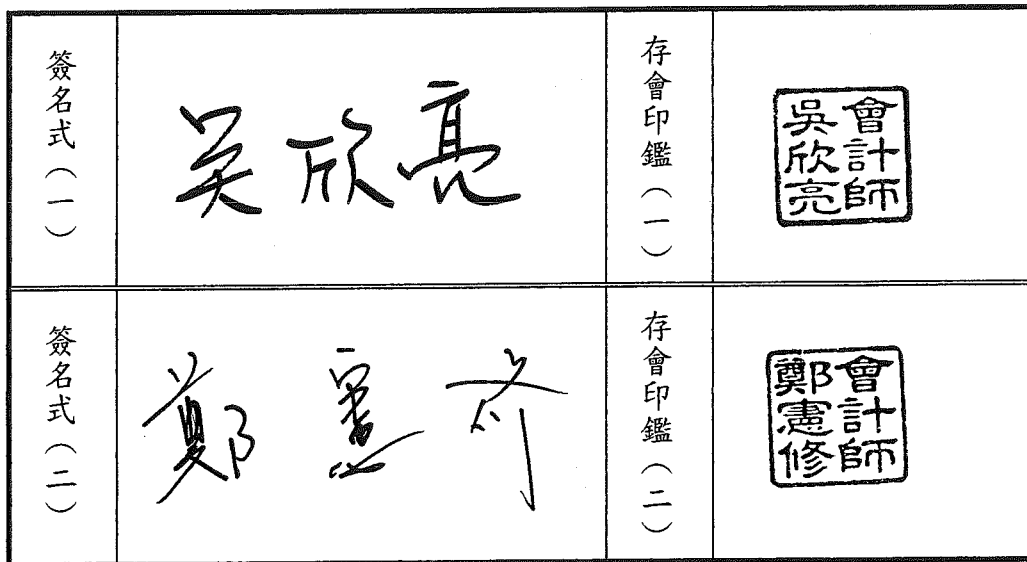 簽名式（一）
吳欣亮
存會印鑑（一）
會計師
吳欣亮
簽名式（二）
鄭憲修
存會印鑑（二）
會計師
鄭憲修